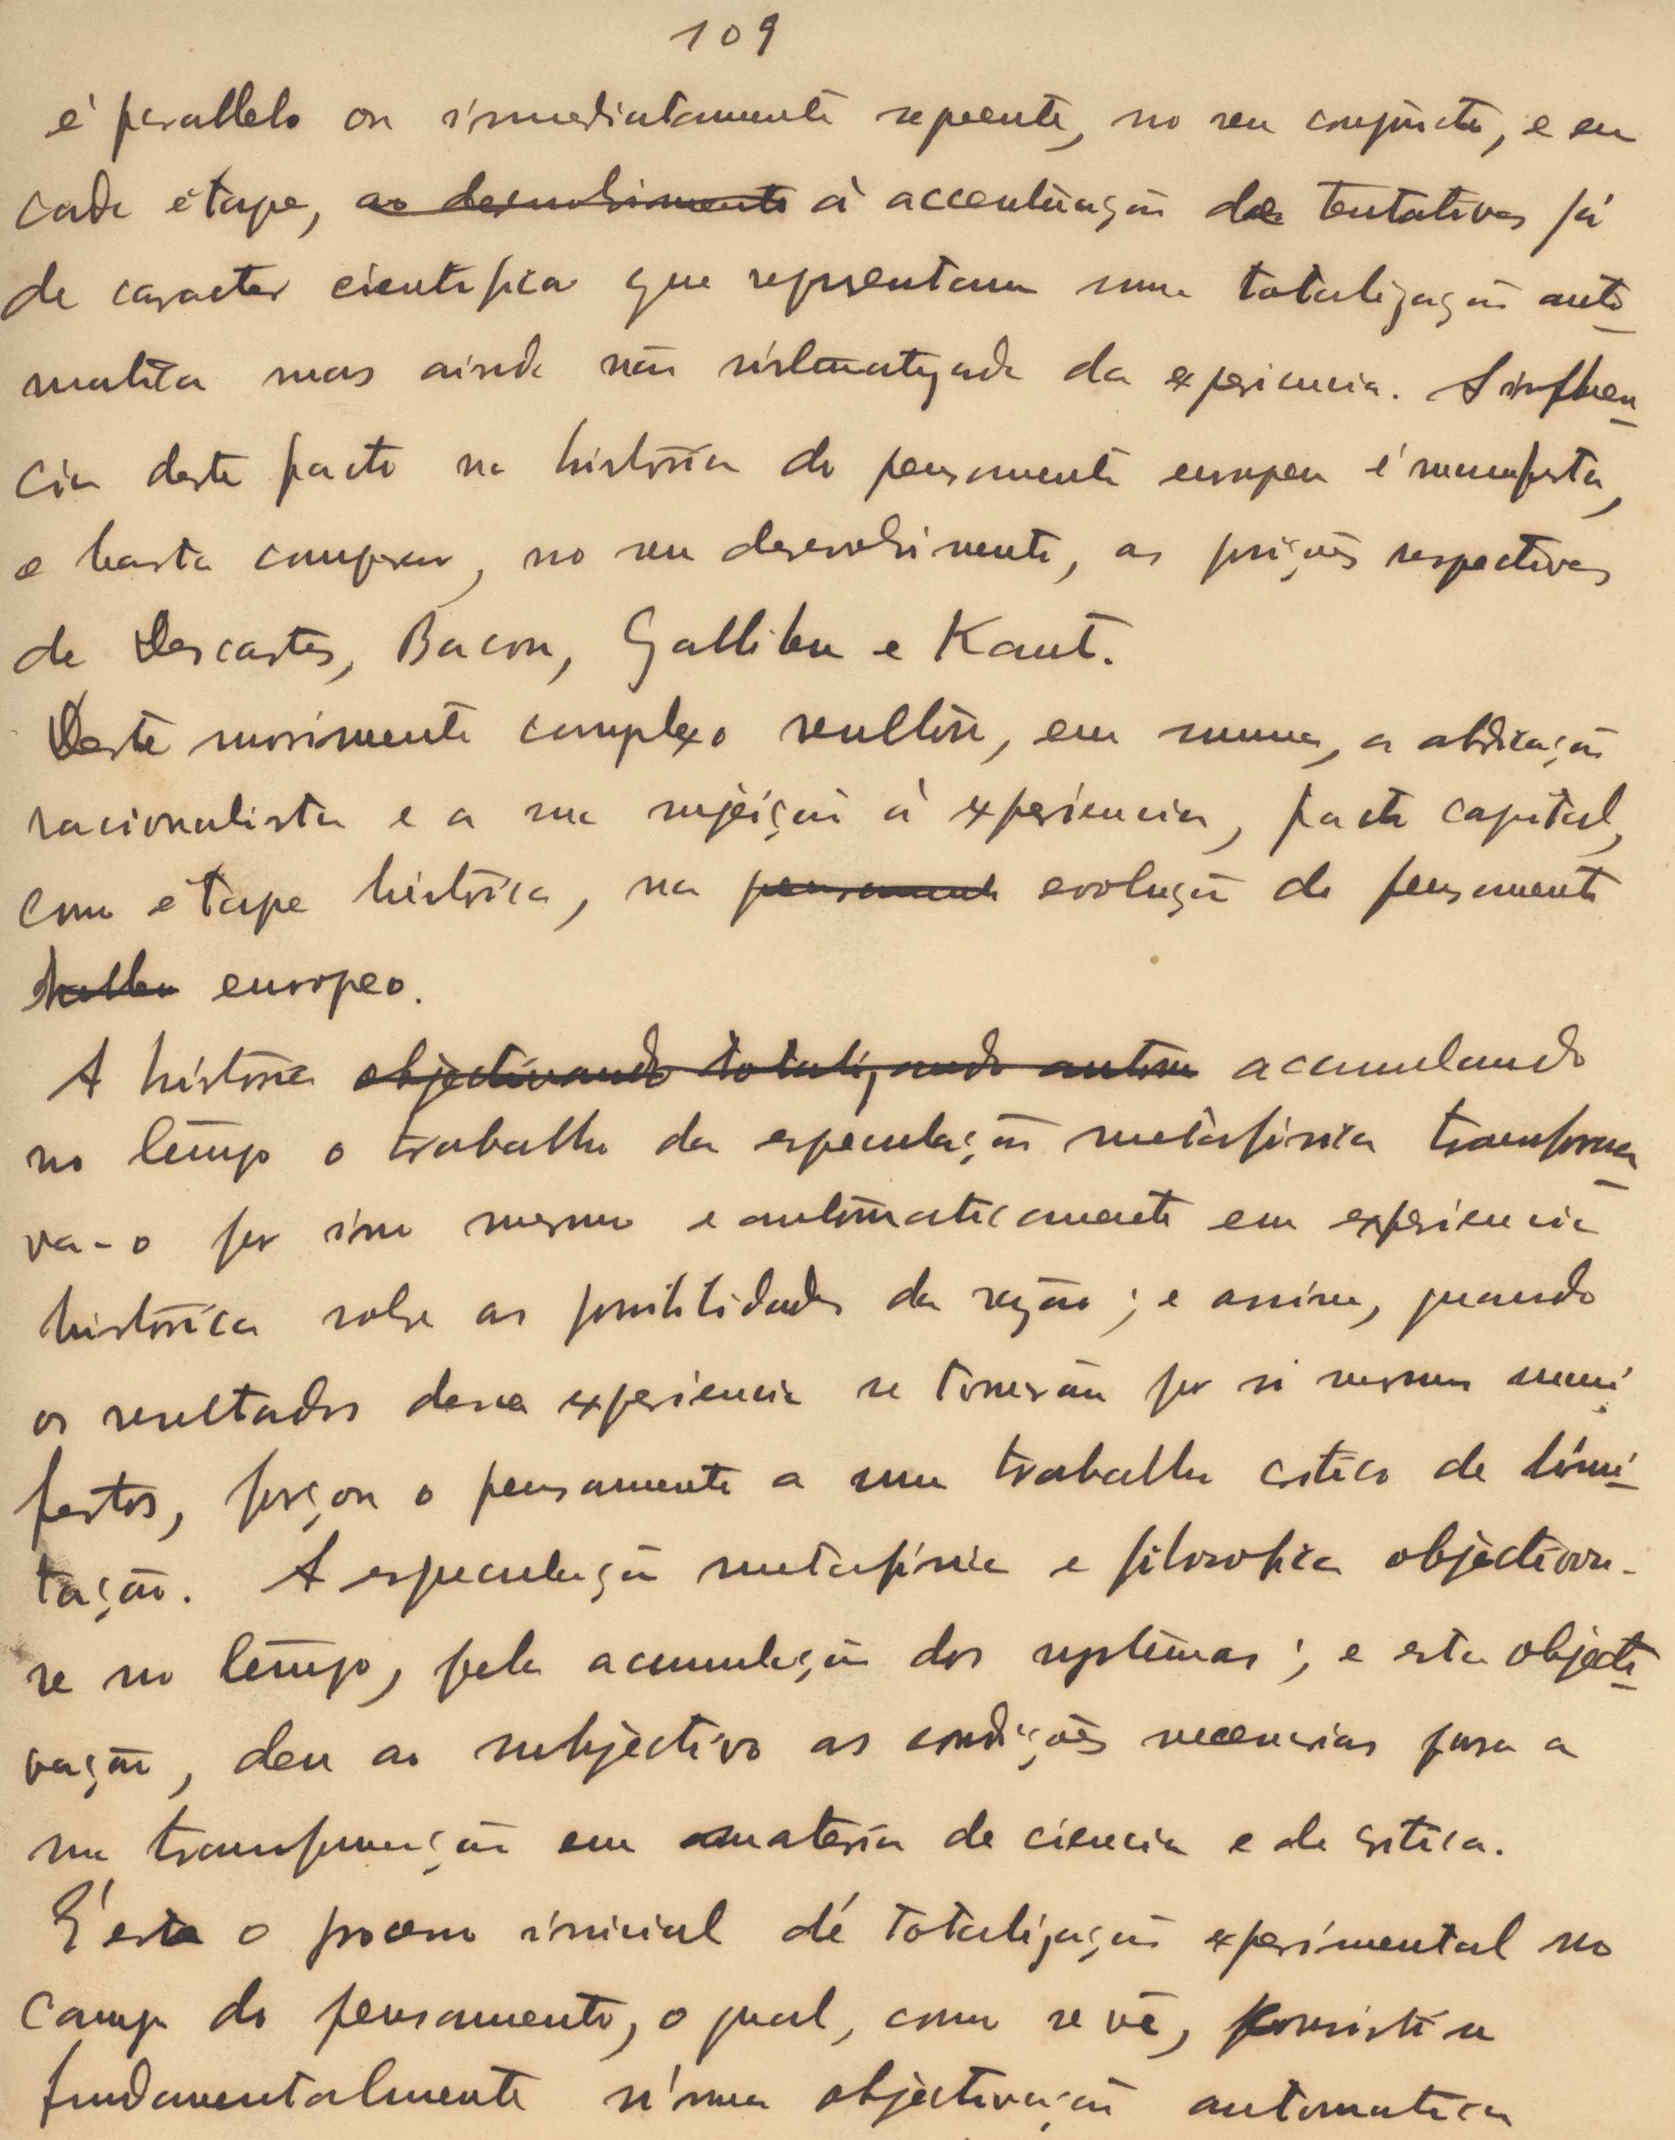 109
é parallelo ou immediatamente seguente, no seu conjuncto, e em
cada étape, ao desenvolvimento á accentuação das tentativas já
de caracter cientifica que representam uma totalização auto
matica mas ainda não sistematizada da experiencia. A influen
cia deste facto na história do pensamento europeu é manifesta,
e basta comparar, no seu desenvolvimento, as posições respectivas
de Descartes, Bacon, Gallileu e Kant.
Deste movimento complexo resultou, em summa, a abdicação
racionalista e a sua sujeição á experiencia, facto capital,
como étape histórica, na pensamento evolução do pensamento
europeo.
A história objectivando totalizando autom acumulando
no tempo o trabalho da especulação metafísica transforma
va-o por isso mesmo e automaticamente em experiencia
histórica sobre as possibilidades da razão; e assim, quando
os resultados dessa experiencia se tornarão por si mesmos mani
festos, forçou o pensamento a um trabalho critico de limi
tação. A especulação metafísica e filosofica objectivou-
se no tempo, pela acumulação dos systemas; e esta objecti
vação, deu ao subjectivo as condições necessarias para a
sua transformação em materia de ciencia e de critica.
É este o processo inicial de totalização experimental no
campo do pensamento, o qual, como se vê, consistiu
fundamentalmente n'uma objectivação automatica